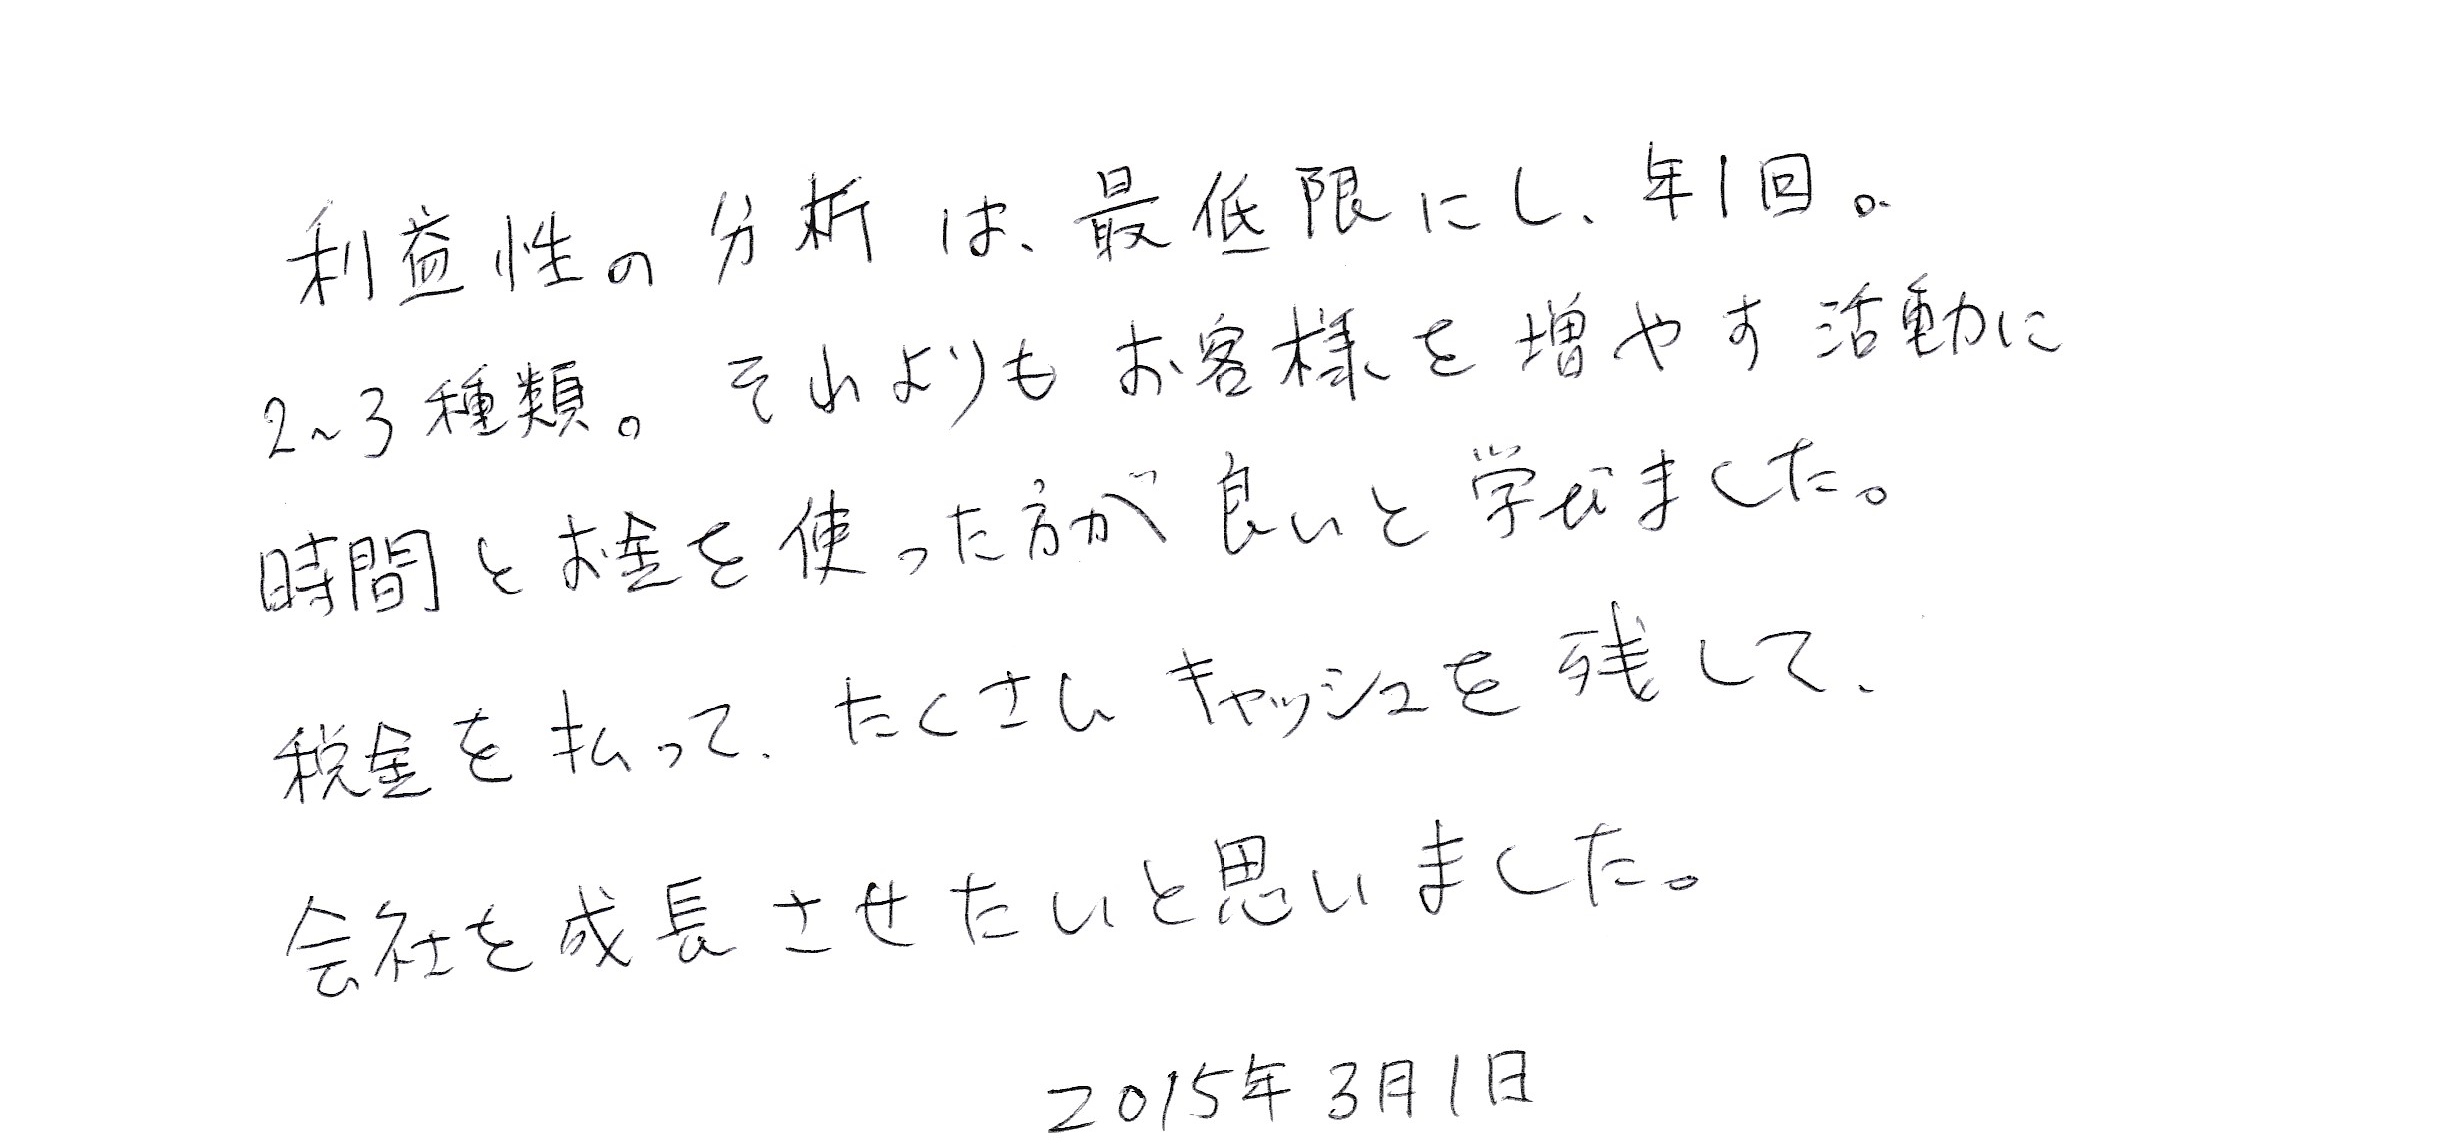 利益性の分析は、最低限にし、年1回。
2~3種類。それよりもお客様を増やす活動に
時間とお金を使った方が良いと学びました。
税金を払って、たくさんキャッシュを残して、
会社を成長させたいと思いました。
2015年3月1日